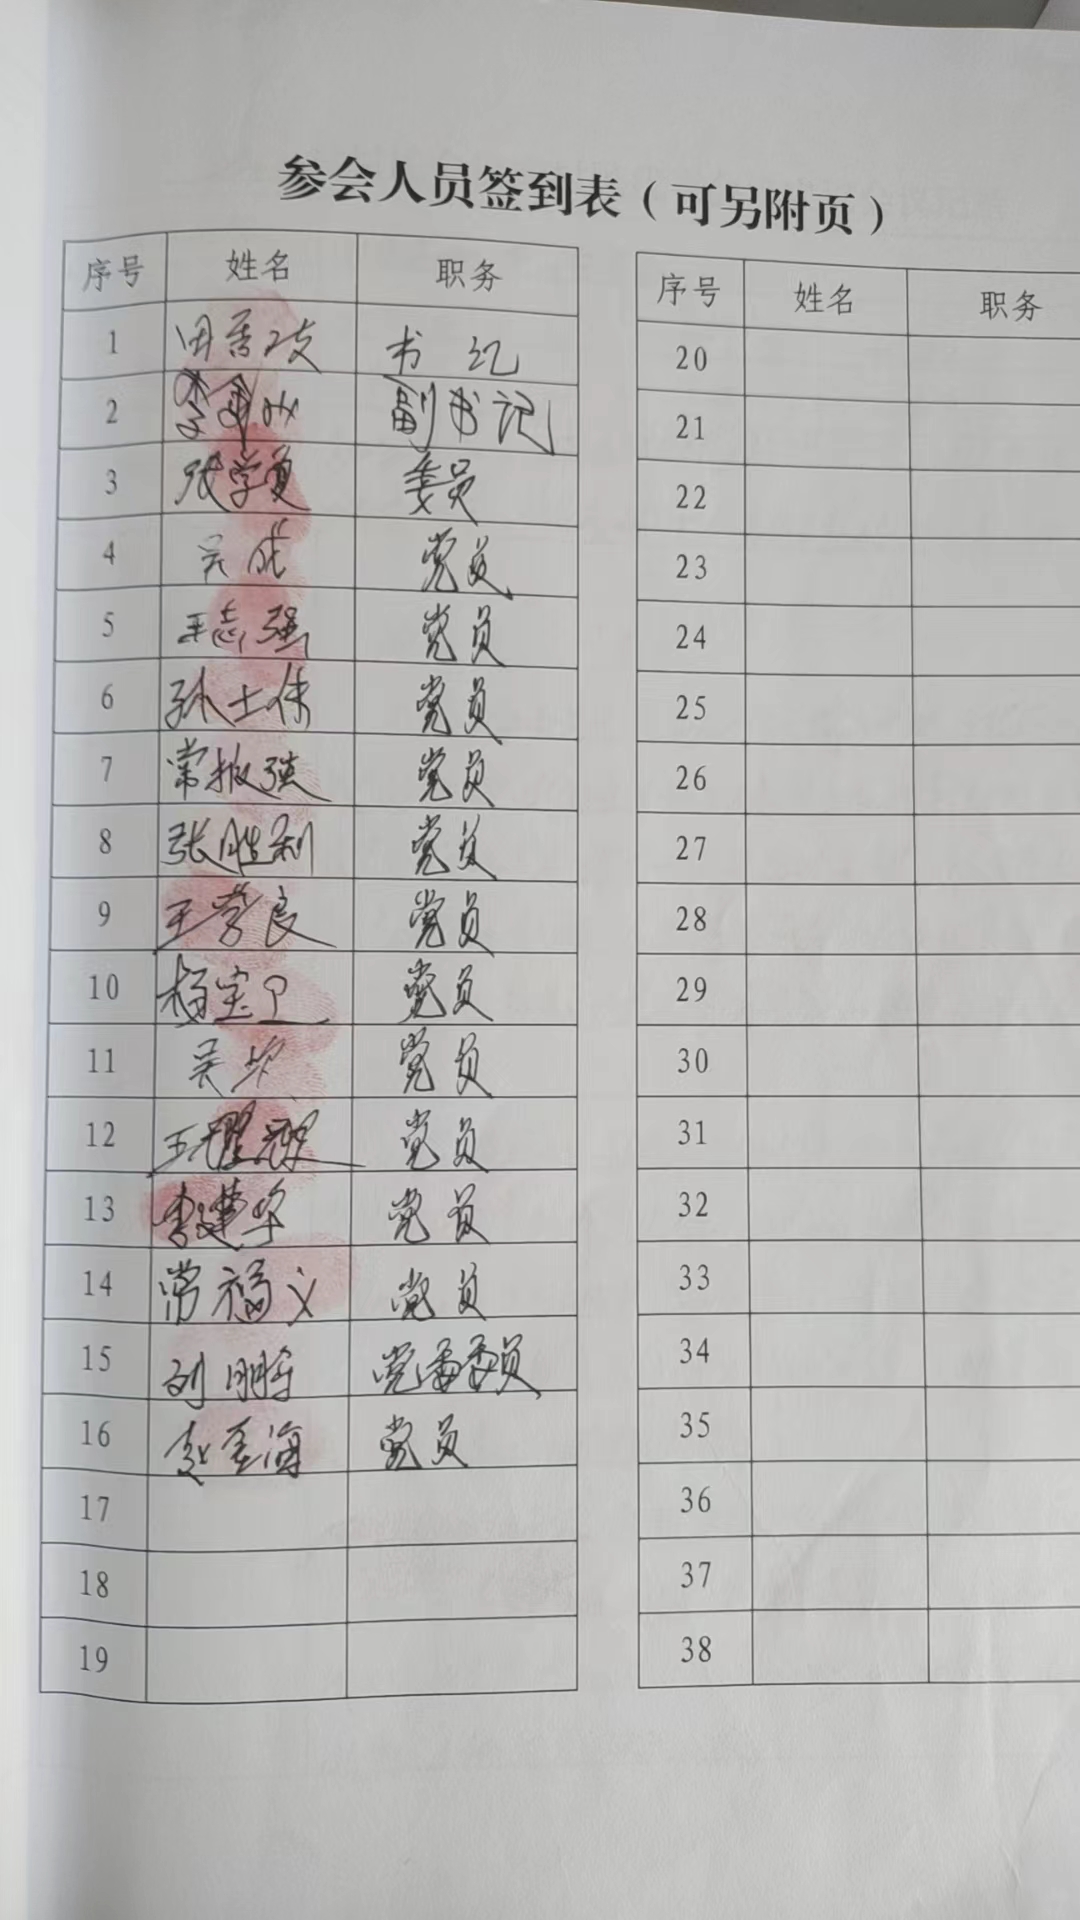 参会人员签到表（可另附页）
序号 姓名 职务
1 书记
2 副书记
3 张学 委员
4 吴成 党员
5 王志强 党员
6 孙士伟 党员
7 常振强 党员
8 张胜利 党员
9 王学良 党员
10 杨宝卫 党员
11 吴 党员
12 王 党员
13 李建华 党员
14 常福义 党员
15 刘 党委委员
16 赵 海 党员
17
18
19
序号 姓名 职务
20
21
22
23
24
25
26
27
28
29
30
31
32
33
34
35
36
37
38